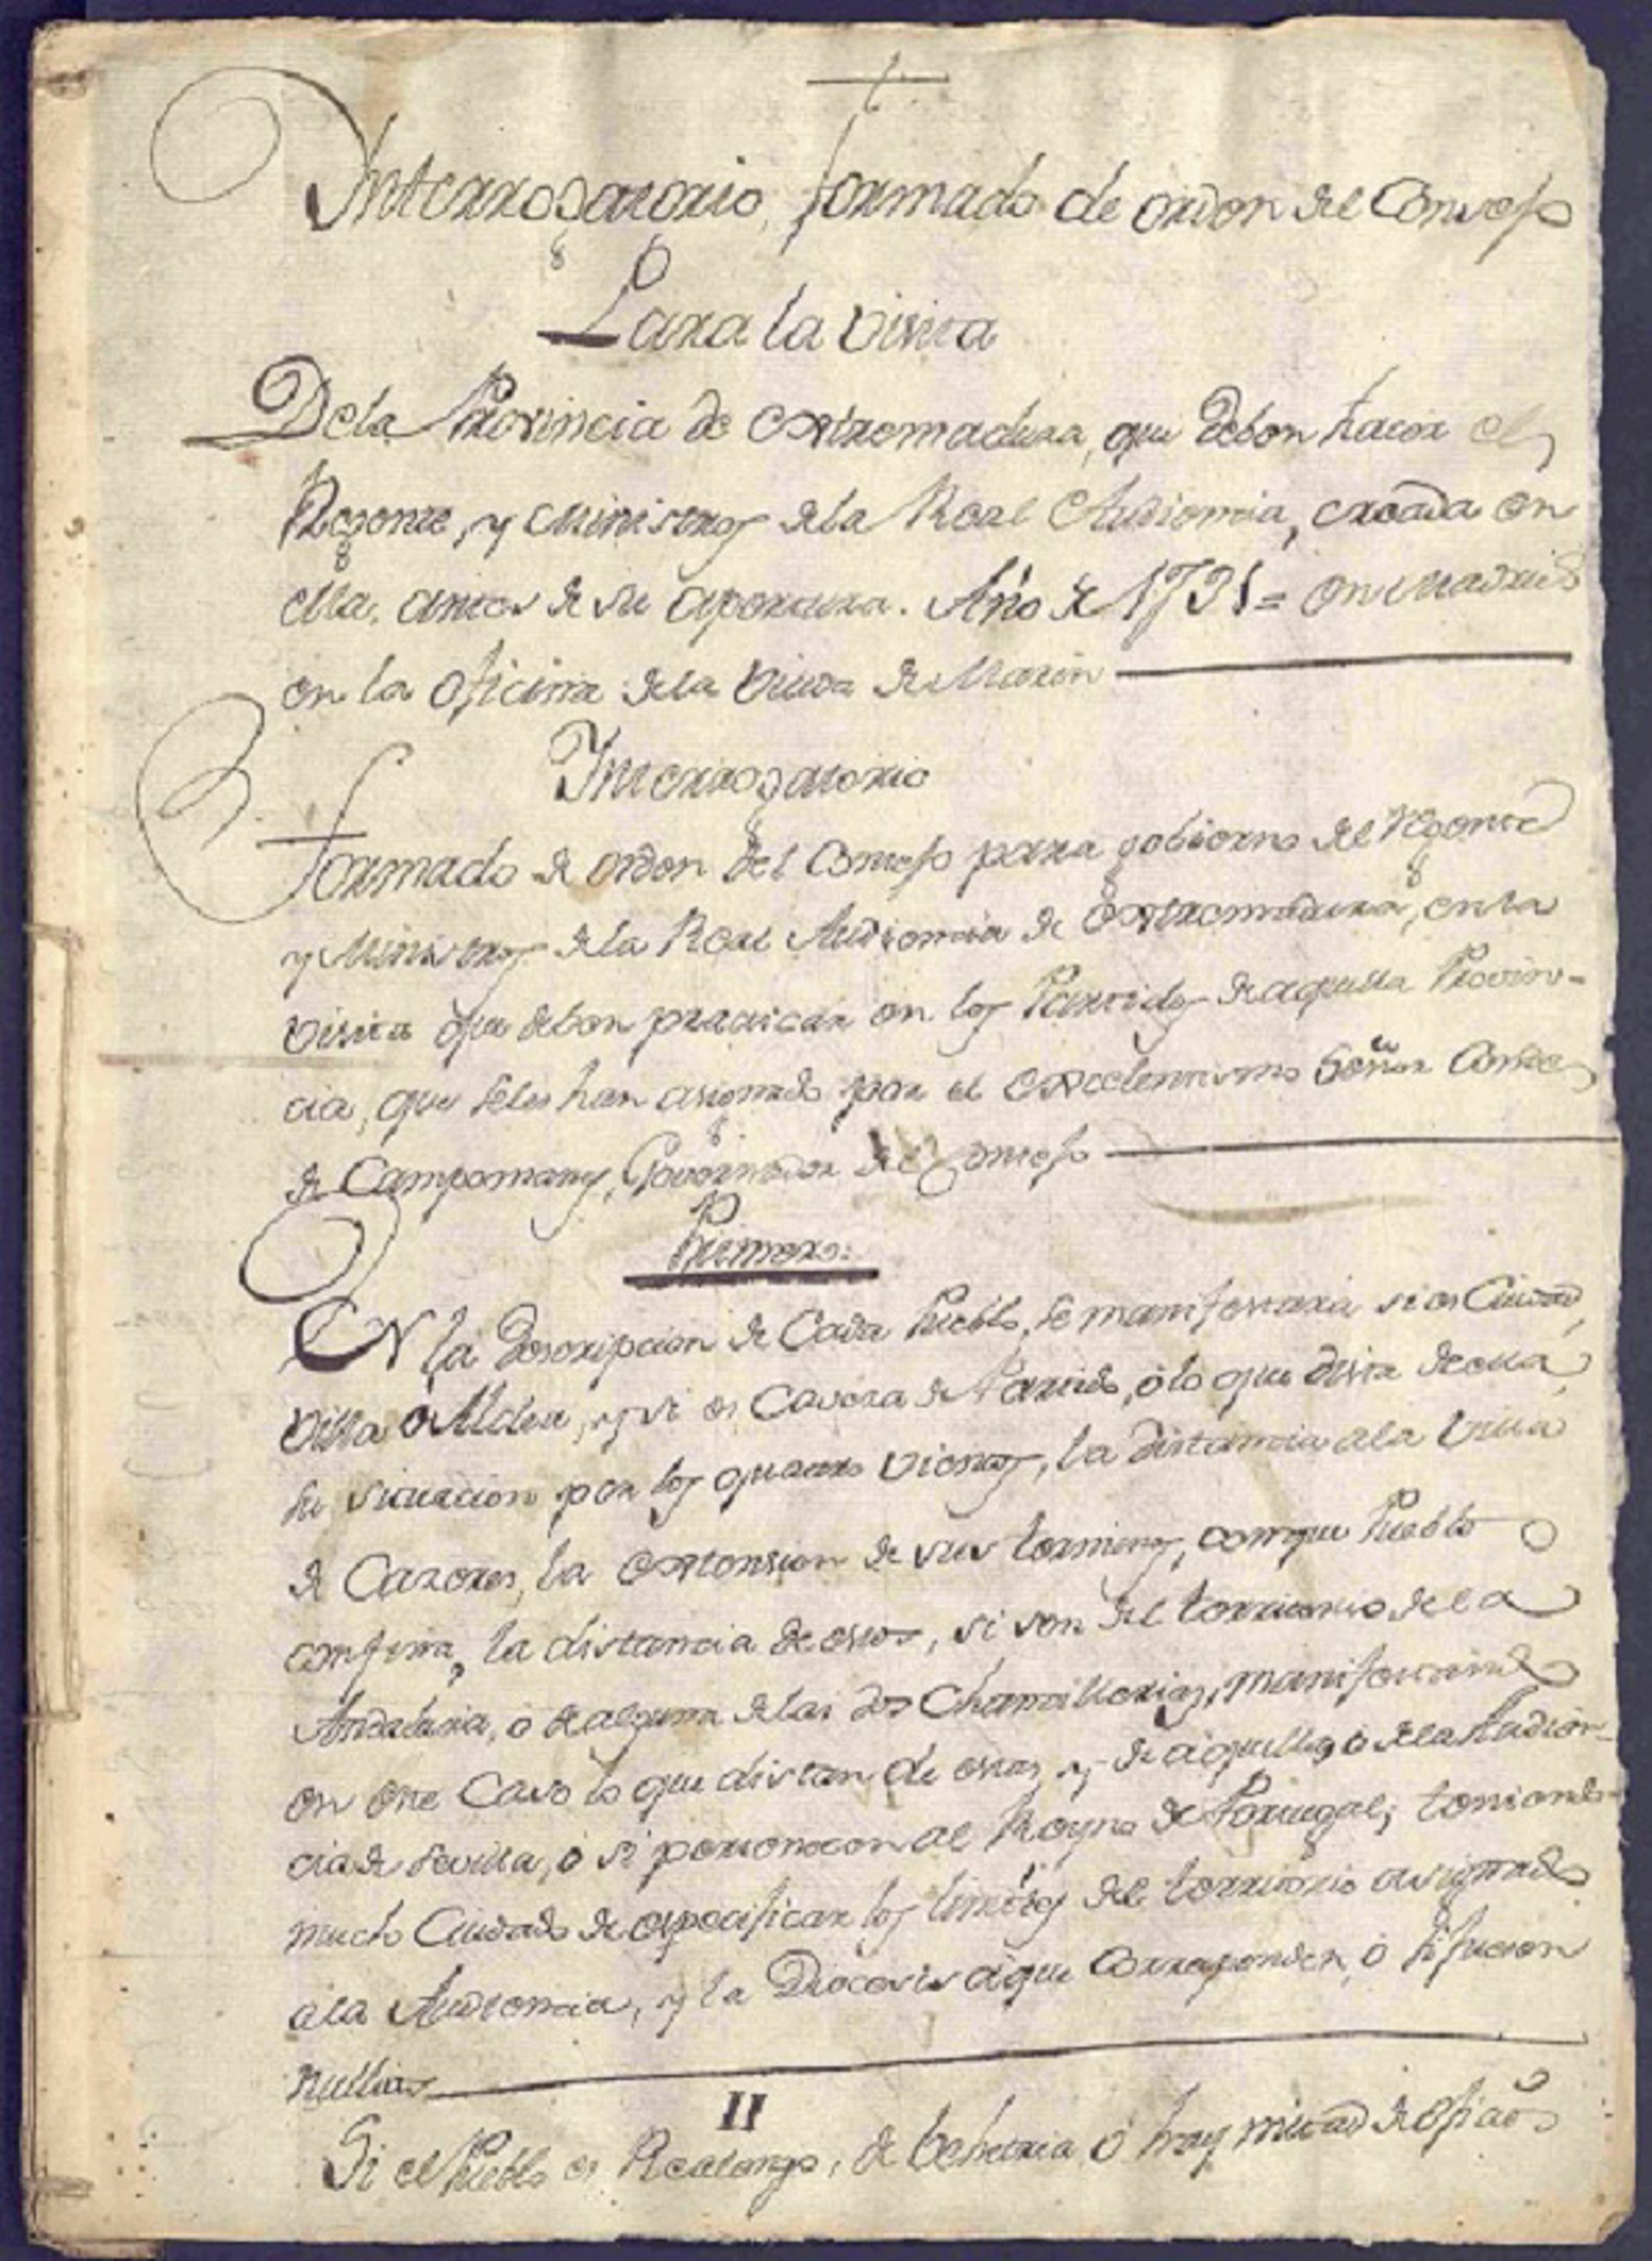 Interrogatorio, formado de orden del Consejo
Para la visita
De la Provincia de Extremadura, que deben hacer el
Regente, y Ministros de la Real Audiencia, creada en
ella, antes de su apertura. Año de 1791= en Madrid
en la oficina de la Viuda de Marin
Interrogatorio
formado de orden del Consejo para gobierno del Regente
y Ministros de la Real Audiencia de Extremadura, en la
visita que deben practicar en los Partidos de aquella Provin-
cia, que seles han asignado por el Excelentisimo Señor Conde
de Campomanes, Governador del Consejo
Primero:
EN la descripcion de Cada Pueblo, se manifestará si es Ciudad,
Villa ó Aldea, y si es Caveza de Partido, ó lo que dista de ella
su situacion por los quatro vientos, la distancia a la Villa
de Cazeres, la extension de sus terminos, con que Pueblo
confina, la distancia de estos, si son del territorio de la
Andalucia, ó de alguna de las dos Chancillerias, manifestando
en este Caso lo que distan de estas, y de aquellas ó de la Audien-
cia de Sevilla, ó si pertenecen al Reyno de Portugal; teniendo
mucho Cuidado de especificar los limites del territorio asignado
a la Audiencia, y la Diocesis á que Corresponden, ó si fueren
nullius
II
Si el Pueblo es Realengo, de behetria ó hay mitad de oficios